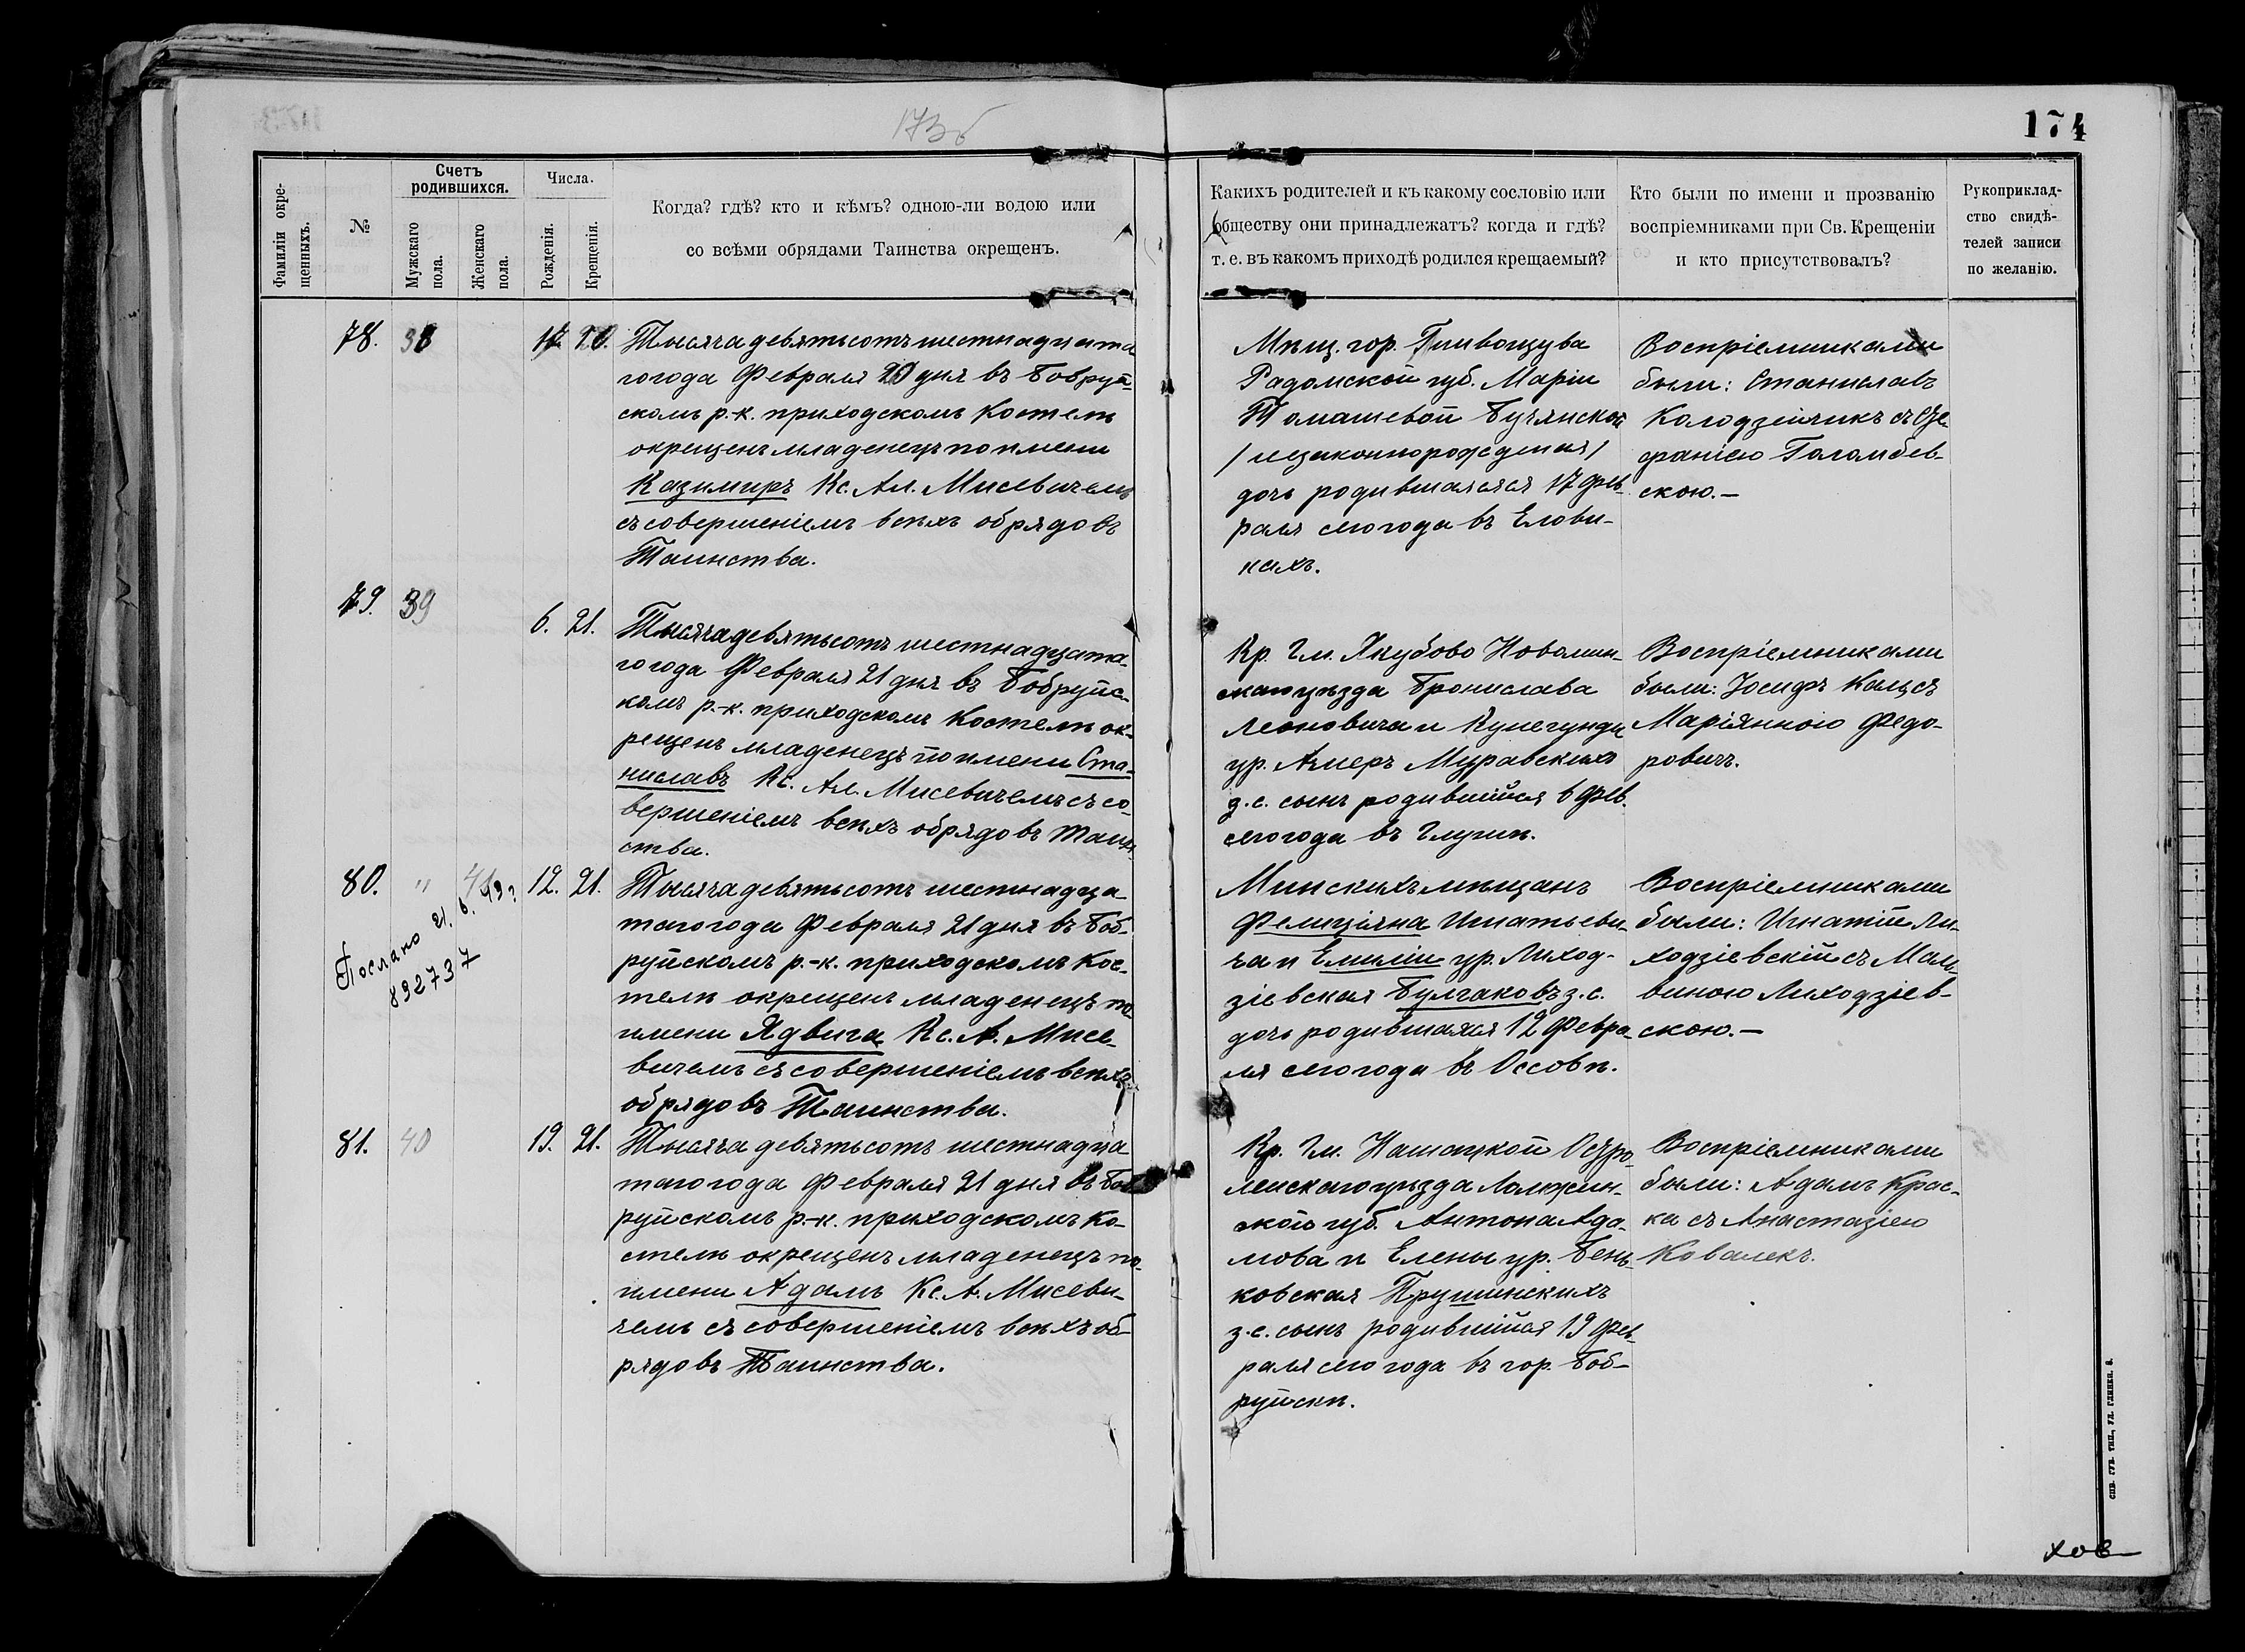 173б
174
Фамиліи окре-
щенныхъ.
№
Счетъ
родившихся.
Мужскаго
пола.
Женскаго
пола.
Числа.
Рожденія.
Крещенія.
Когда? гдѣ? кто и кѣмъ? одною-ли водою или
со всѣми обрядами Таинства окрещенъ.
Какихъ родителей и къ какому сословію или
обществу они принадлежатъ? когда и гдѣ?
т. е. въ какомъ приходѣ родился крещаемый?
Кто были по имени и прозванію
воспріемниками при Св. Крещеніи
и кто присутствовалъ?
Рукоприклад-
ство свидѣ-
телей записи
по желанію.
78.
38
17. 20.
Тысяча девятьсотъ шестнадцата
го года Февраля 20 дня въ Бобруй-
скомъ р.-к. приходскомъ Костелѣ
окрещенъ младенецъ по имени
Казимиръ Кс. Ал. Мисевичемъ
съ совершеніемъ всѣхъ обрядовъ
Таинства.
Мѣщ. гор.
Радомской губ. Маріи
Томашевой
/незаконнорожденія/
дочь родившаяся 17 Фев-
раля сего года въ Елови-
кахъ.
Воспріемниками
были: Станиславъ
Колодзейчикъ съ Сте-
фаніеюГоломбев-
скою.—
79.
39
6. 21.
Тысяча девятьсотъ шестнадцата-
го года Февраля 21 дня въ Бобруйс-
комъ р.-к. приходскомъ Костелѣ ок-
рещенъ младенецъ по имени Ста-
ниславъ Кс. Ал. Мисевичемъ съ со-
вершеніемъ всѣхъ обрядовъ Таин-
ства.
Кр. Гм. Якубово Новомин-
скаго уѣзда Бронислава
Леоновича и Кунегунды
ур. Амеръ Муравскихъ
з.с. сынъ родившійся 6 Фев.
сего года въ Глушѣ.
Воспріемниками
были: Іосифъ Кальсъ
Маріянною Федо-
ровичъ.
80.
"
41
12. 21.
Послано 21. 6. 43г
892737
Тысяча девятьсотъ шестнадца-
таго года Февраля 21 дня въ Боб-
руйскомъ р.-к. приходскомъ Кос-
телѣ окрещенъ младенецъ по
имени Ядвига Кс. А. Мисе-
вичемъ съ совершеніемъ всѣхъ
обрядовъ Таинства.
Минскихъ мѣщанъ
Фелиціяна Игнатьеви-
ча и Емиліи ур. Лиход-
зіевская Булгаковъ з.с.
дочь родившаяся 12 Февра-
ля сего года въ Оссовѣ.
Воспріемниками
были: Игнатій Ли-
ходзіевскій съ Маль-
виною Лиходзіев-
скою.—
81.
40
19. 21.
Тысяча девятьсотъ шестнадца
таго года Февраля 21 дня въ Боб
руйскомъ р.-к. приходскомъ Ко-
стелѣ окрещенъ младенецъ по-
имени Адамъ Кс. А. Мисеви-
чемъ съ совершеніемъ всѣхъ об-
рядовъ Таинства.
Кр. Гм. Остро-
ленскаго уѣзда Ломжин-
ской губ. Антона Ада-
мова и Елены ур. Бень-
ковская Прушинскихъ
з.с. сынъ родившійся 19 Фев-
раля сего года въ гор. Боб-
руйскѣ.
Воспріемниками
были: Адамъ Крас-
ка съ Анастазіею
Ковалекъ.
СПВ. ГУБ. ТИП., УЛ. ГЛИНКА. 8.
хов